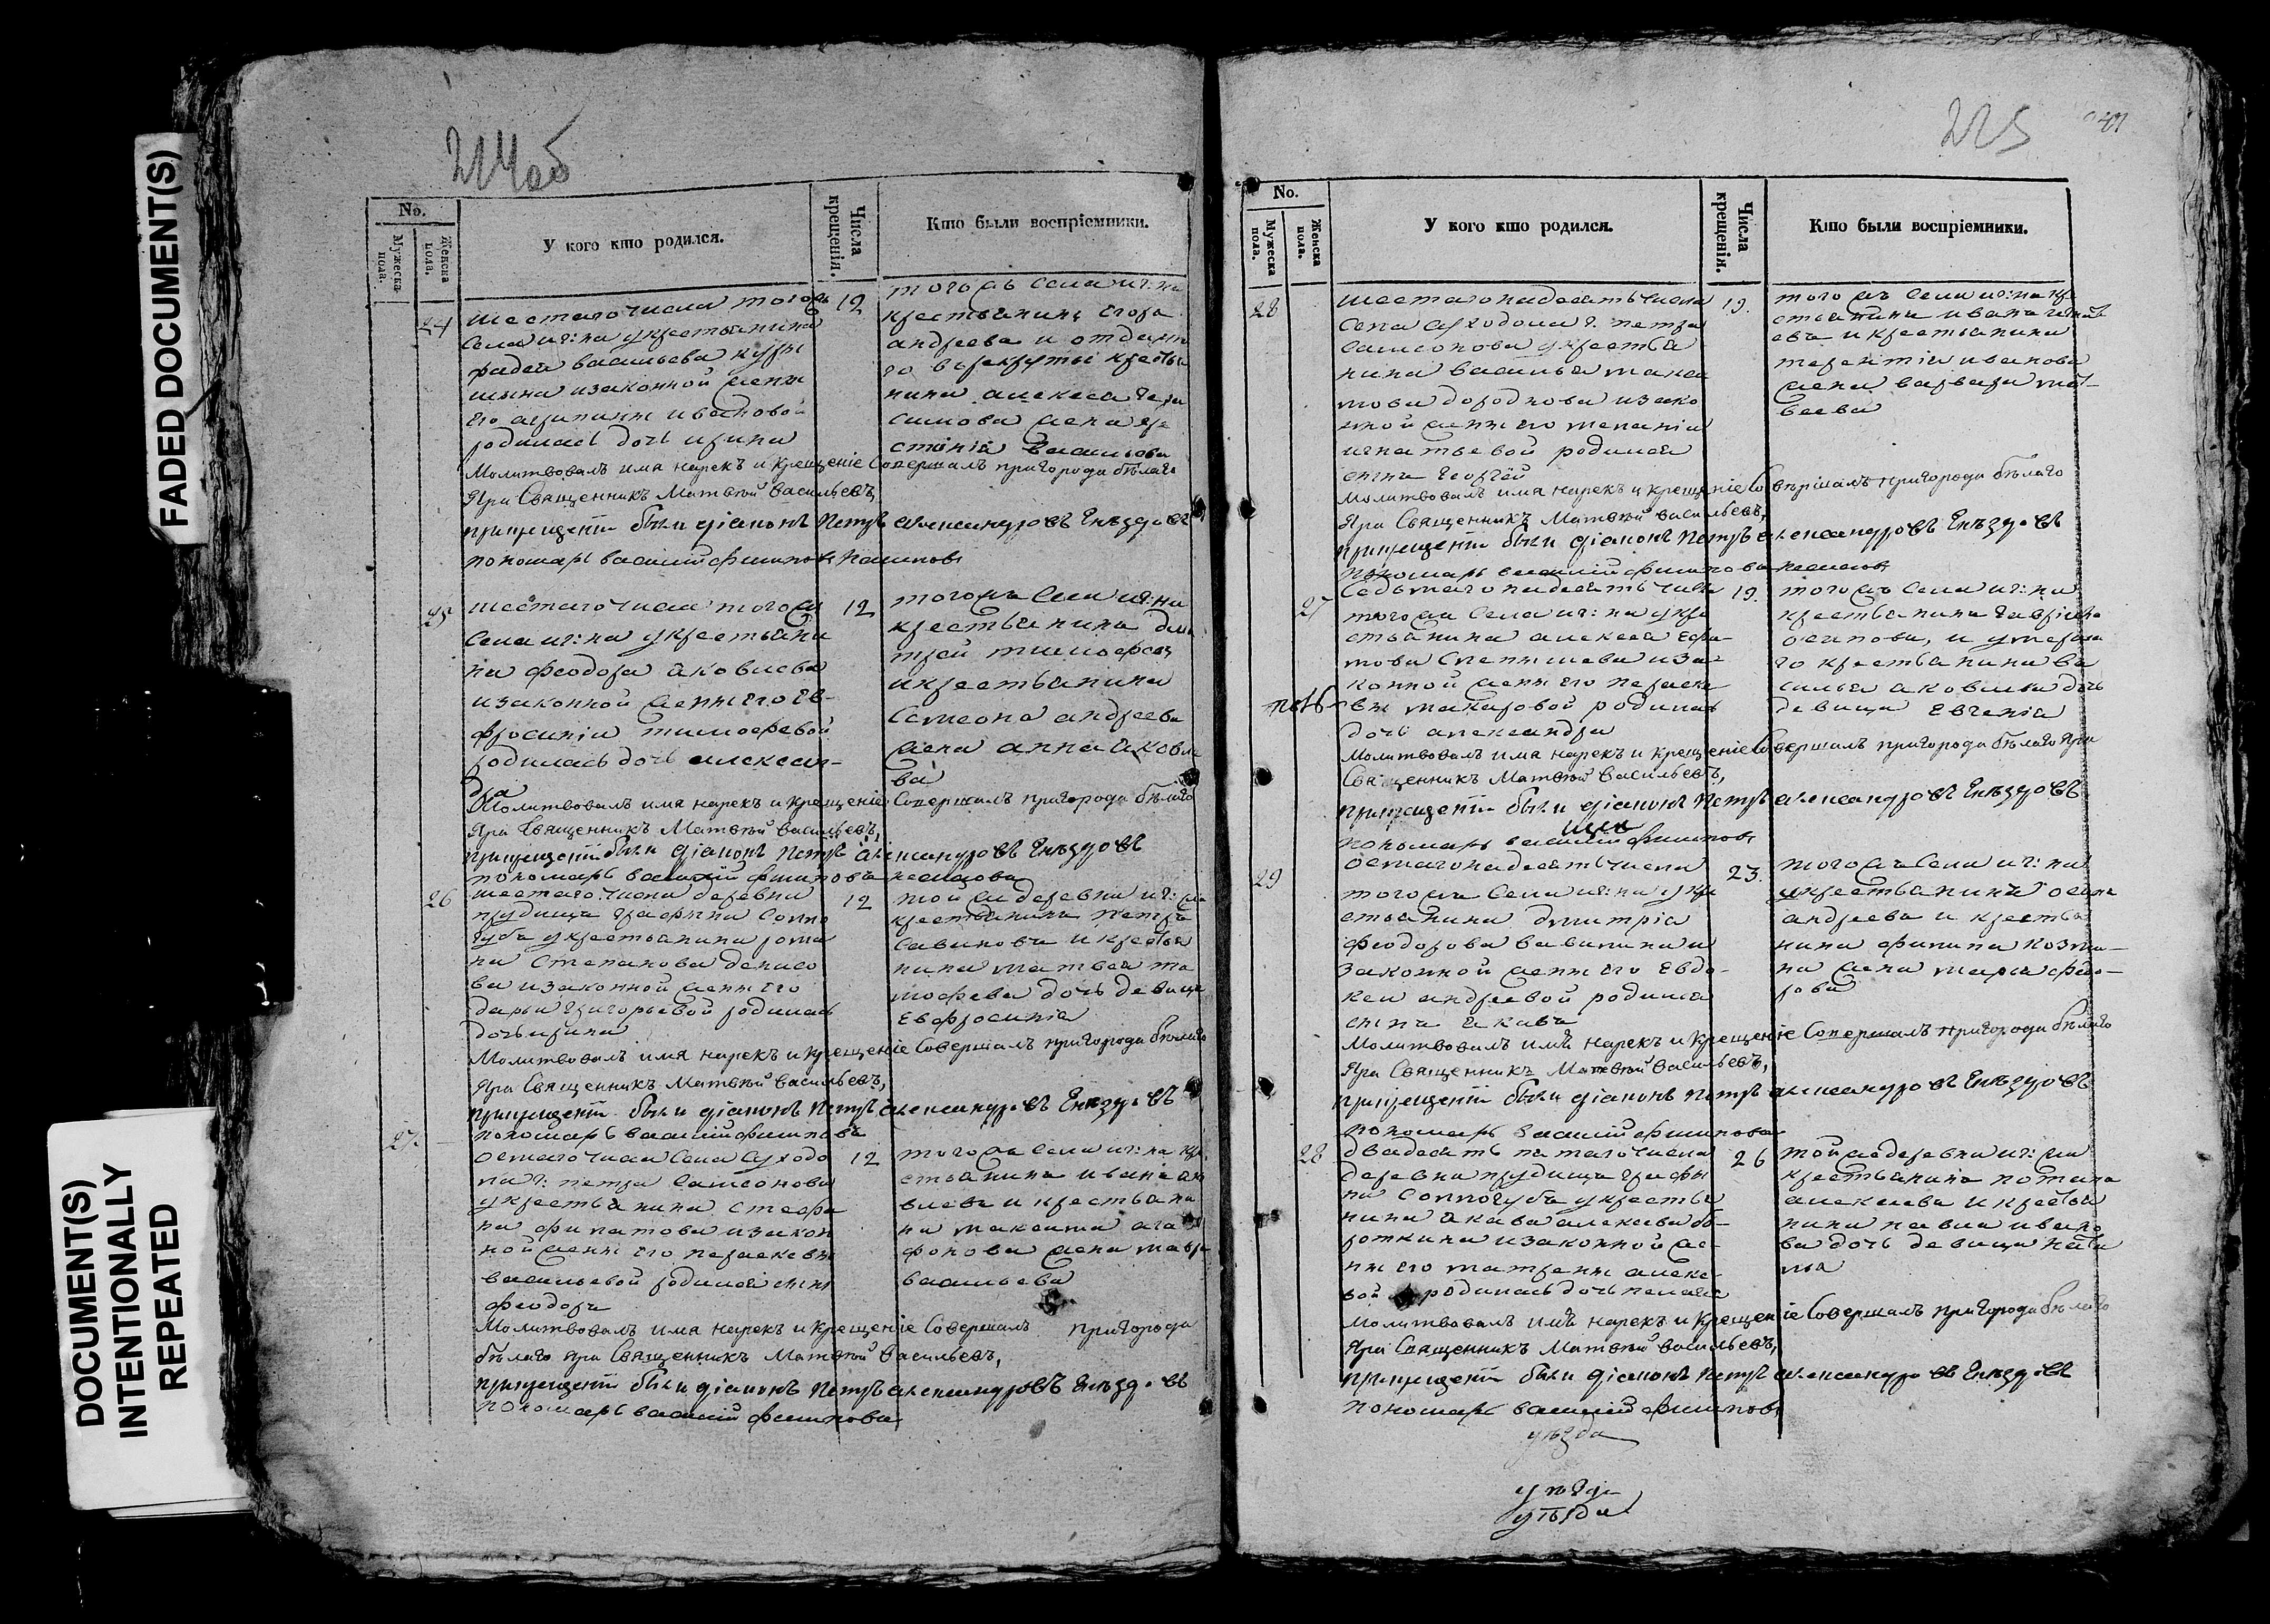 FADED DOCUMENT(S)
DOCUMENT(S)
INTENTIONALLY
REPEATED
214об
No.
Мужеска пола.
Женска пола.
У кого кто родился.
Числа крещенія.
Кто были воспріемники.
24
шестаго числа тогожъ
села иг:на укрестьянина
фадея васильева
изаконной жены
его
родилась дочь ирина
12
тогожъ села иг:на
крестьянинъ егоръ
андреевъ и отданна
го врекруты крестья
нина алексея
симова жена
васильева
Молитвовалъ имя нарекъ и крещеніе Совершалъ пригорода бѣлаго
Яра Священникъ Матвѣй Васильевъ,
при крещеніи были діаконъ Петръ Александровъ Гнѣздовъ
пономарь василий филиповъ
25
шестаго числа тогожъ
села иг:на укрестьяни
на феодора яковлева
изаконной жены его ев-
фросиніи тимофеевой
родилась дочь александ-
ра
12
тогожъ села иг:на
крестьянинъ дми
трей тимофеевъ
икрестьянина
Семиона андреева
жена анна яковле
ва
Молитвовалъ имя нарекъ и крещеніе Совершалъ пригорода бѣлаго
Яра Священникъ Матвѣй Васильевъ,
при крещеніи были діаконъ Петръ Александровъ Гнѣздовъ
пономарь василий филиповъ
26
шестаго числа деревни
прудища графини солло
губъ укрестьянина рома
на степанова денисо
ва изаконной жены его
дарьи григорьевой родилась
дочь ирина
12
той же деревни
крестьянинъ петръ
савиновъ и крестья
нина матвея ти
мофеева дочь девица
Евфросинія
Молитвовалъ имя нарекъ и крещеніе Совершалъ пригорода бѣлаго
Яра Священникъ Матвѣй Васильевъ,
при крещеніи были діаконъ Петръ Александровъ Гнѣздовъ
пономарь василий филиповъ
27
осмаго числа села суходо
ла г. петра самсонова
укрестьянина стефа
на филатова изакон
ной жены его парасковьи
васильевой родился сынъ
феодоръ
12
тогожъ села иг:на кре
стьянинъ иванъ як
влевъ и крестьяни
на максима ага
фонова жена мавра
васильева
Молитвовалъ имя нарекъ и крещеніе Совершалъ пригорода
бѣлаго яра Священникъ Матвѣй Васильевъ,
при крещеніи были діаконъ Петръ Александровъ Гнѣздовъ
пономарь василий филиповъ
225
No.
Мужеска пола.
Женска пола.
У кого кто родился.
Числа крещенія.
Кто были воспріемники.
28
шестагонадесять числа
села суходола г. петра
самсонова укрестья
нина василья макси
мова дороднова изако
нной жены его меланіи
игнатьевой родился
сынъ георгей
19.
тогожъ села иг:на кре
стьянинъ иванъ игнать
евъ и крестьянина
терентія иванова
жена варвара мат-
веева
Молитвовалъ имя нарекъ и крещеніе Совершалъ пригорода бѣлаго
Яра Священникъ Матвѣй Васильевъ,
при крещеніи были діаконъ Петръ Александровъ Гнѣздовъ
пономарь василий филиповъ
27
Седьмагонадесять числа
тогожъ села иг:на укре
стьянина алексея
това изa-
конной жены его параско
вьи макаровой родилась
дочь александра
19.
тогожъ села иг:на
крестьянинъ гаврила
осиповъ, и умерша
го крестьянина ва
силья яковлева дочь
девица евгенія
Молитвовалъ имя нарекъ и крещеніе Совершалъ пригорода бѣлаго Яра
Священникъ Матвѣй Васильевъ,
при крещеніи были діаконъ Петръ Александровъ Гнѣздовъ
пономарь василий филиповъ
29
осмагонадесять числа
тогожъ села иг:на укре
стьянина дмитрія
феодорова вавилина и
законной жены его евдо-
кеи андреевой родился
сынъ иаковъ
23.
тогожъ села иг:на
крестьянинъ осипъ
андреевъ и крестья
нина филипа козми-
на жена марья федо-
рова
Молитвовалъ имя нарекъ и крещеніе Совершалъ пригорода бѣлаго
Яра Священникъ Матвѣй Васильевъ,
при крещеніи были діаконъ Петръ Александровъ Гнѣздовъ
пономарь василий филиповъ
28
двадесять пятаго числа
деревни прудища графи
ни соллогубъ укрестья
нина якова алексеева
изаконной же
ны его матрены алексе
вой родилась дочь пелагея
26
той же деревни
крестьянинъ потапъ
алексеевъ и крестья
нина павла ивано
ва дочь девица ната
лья
Молитвовалъ имя нарекъ и крещеніе Совершалъ пригорода бѣлаго
Яра Священникъ Матвѣй Васильевъ,
при крещеніи были діаконъ Петръ Александровъ Гнѣздовъ
пономарь василий филиповъ
уѣзда
уѣзда
уѣзда